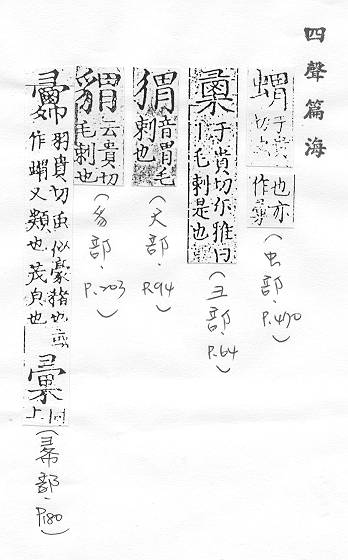 四聲篇海
蝟 于貴切 虫也亦作彙（虫部．P.470）
彙 于貴切尔雅曰丨毛刺是也（彐部．P.64）
猬 音胃毛刺也（犬部．P.94）
貒 云貴切毛刺也（豸部．P.203）
羽貴切虫似豪豬也
作蝟又類也茂皃也
彙 同上（㣇部．P.180）